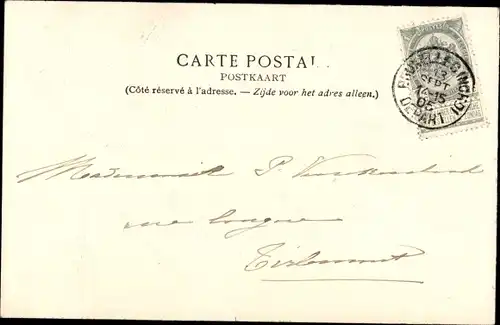 CARTE POSTAL
POSTKAART
(Côté réservé à l'adresse. — Zijde voor het adres alleen.)
13
SEPT
DEPART
Mademoiselle P.
rue longue
Tirlemont